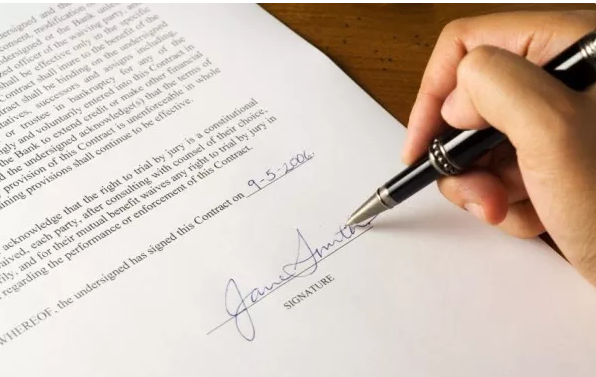 dersigned and the
consent, modification o
dersigned or the Bank unle
zed officer of the waiving party, an
hall be effective only in the specific
Contract shall inure to the benefit of the
tract shall be binding on the undersigned
tatives, successors and assigns including,
or trustee in bankruptcy for any of the
ngly and voluntarily entered into this Contract in
the Bank to extend credit or make other financial
d the undersigned acknowledge(s) that the terms of
provision of this Contract is unenforceable in whole
ining provisions shall continue to be effective.
acknowledge that the right to trial by jury is a constitutional
aived, each party, after consulting with counsel of their choice,
rily, and for their mutual benefit waives any right to trial by jury in
regarding the performance or enforcement of this Contract.
WHEREOF, the undersigned has signed this Contract on 9-5-2006.
Jane Smith
SIGNATURE